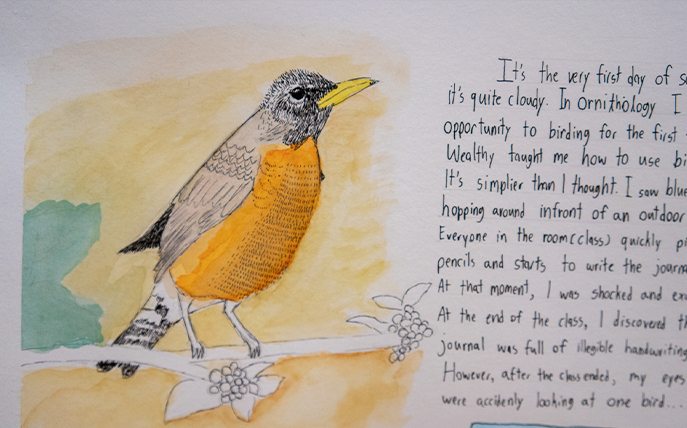 It's the very first day of
it's quite cloudy. In Ornithology I
opportunity to birding for the first
Wealthy taught me how to use
It's simplier than I thought. I saw
hopping around infront of an outdoor
Everyone in the room(class) quickly
pencils and starts to write the
At that moment, I was shocked and
At the end of the class, I discovered
journal was full of illegible handwriting
However, after the class ended, my eyes
were accidenly looking at one bird...